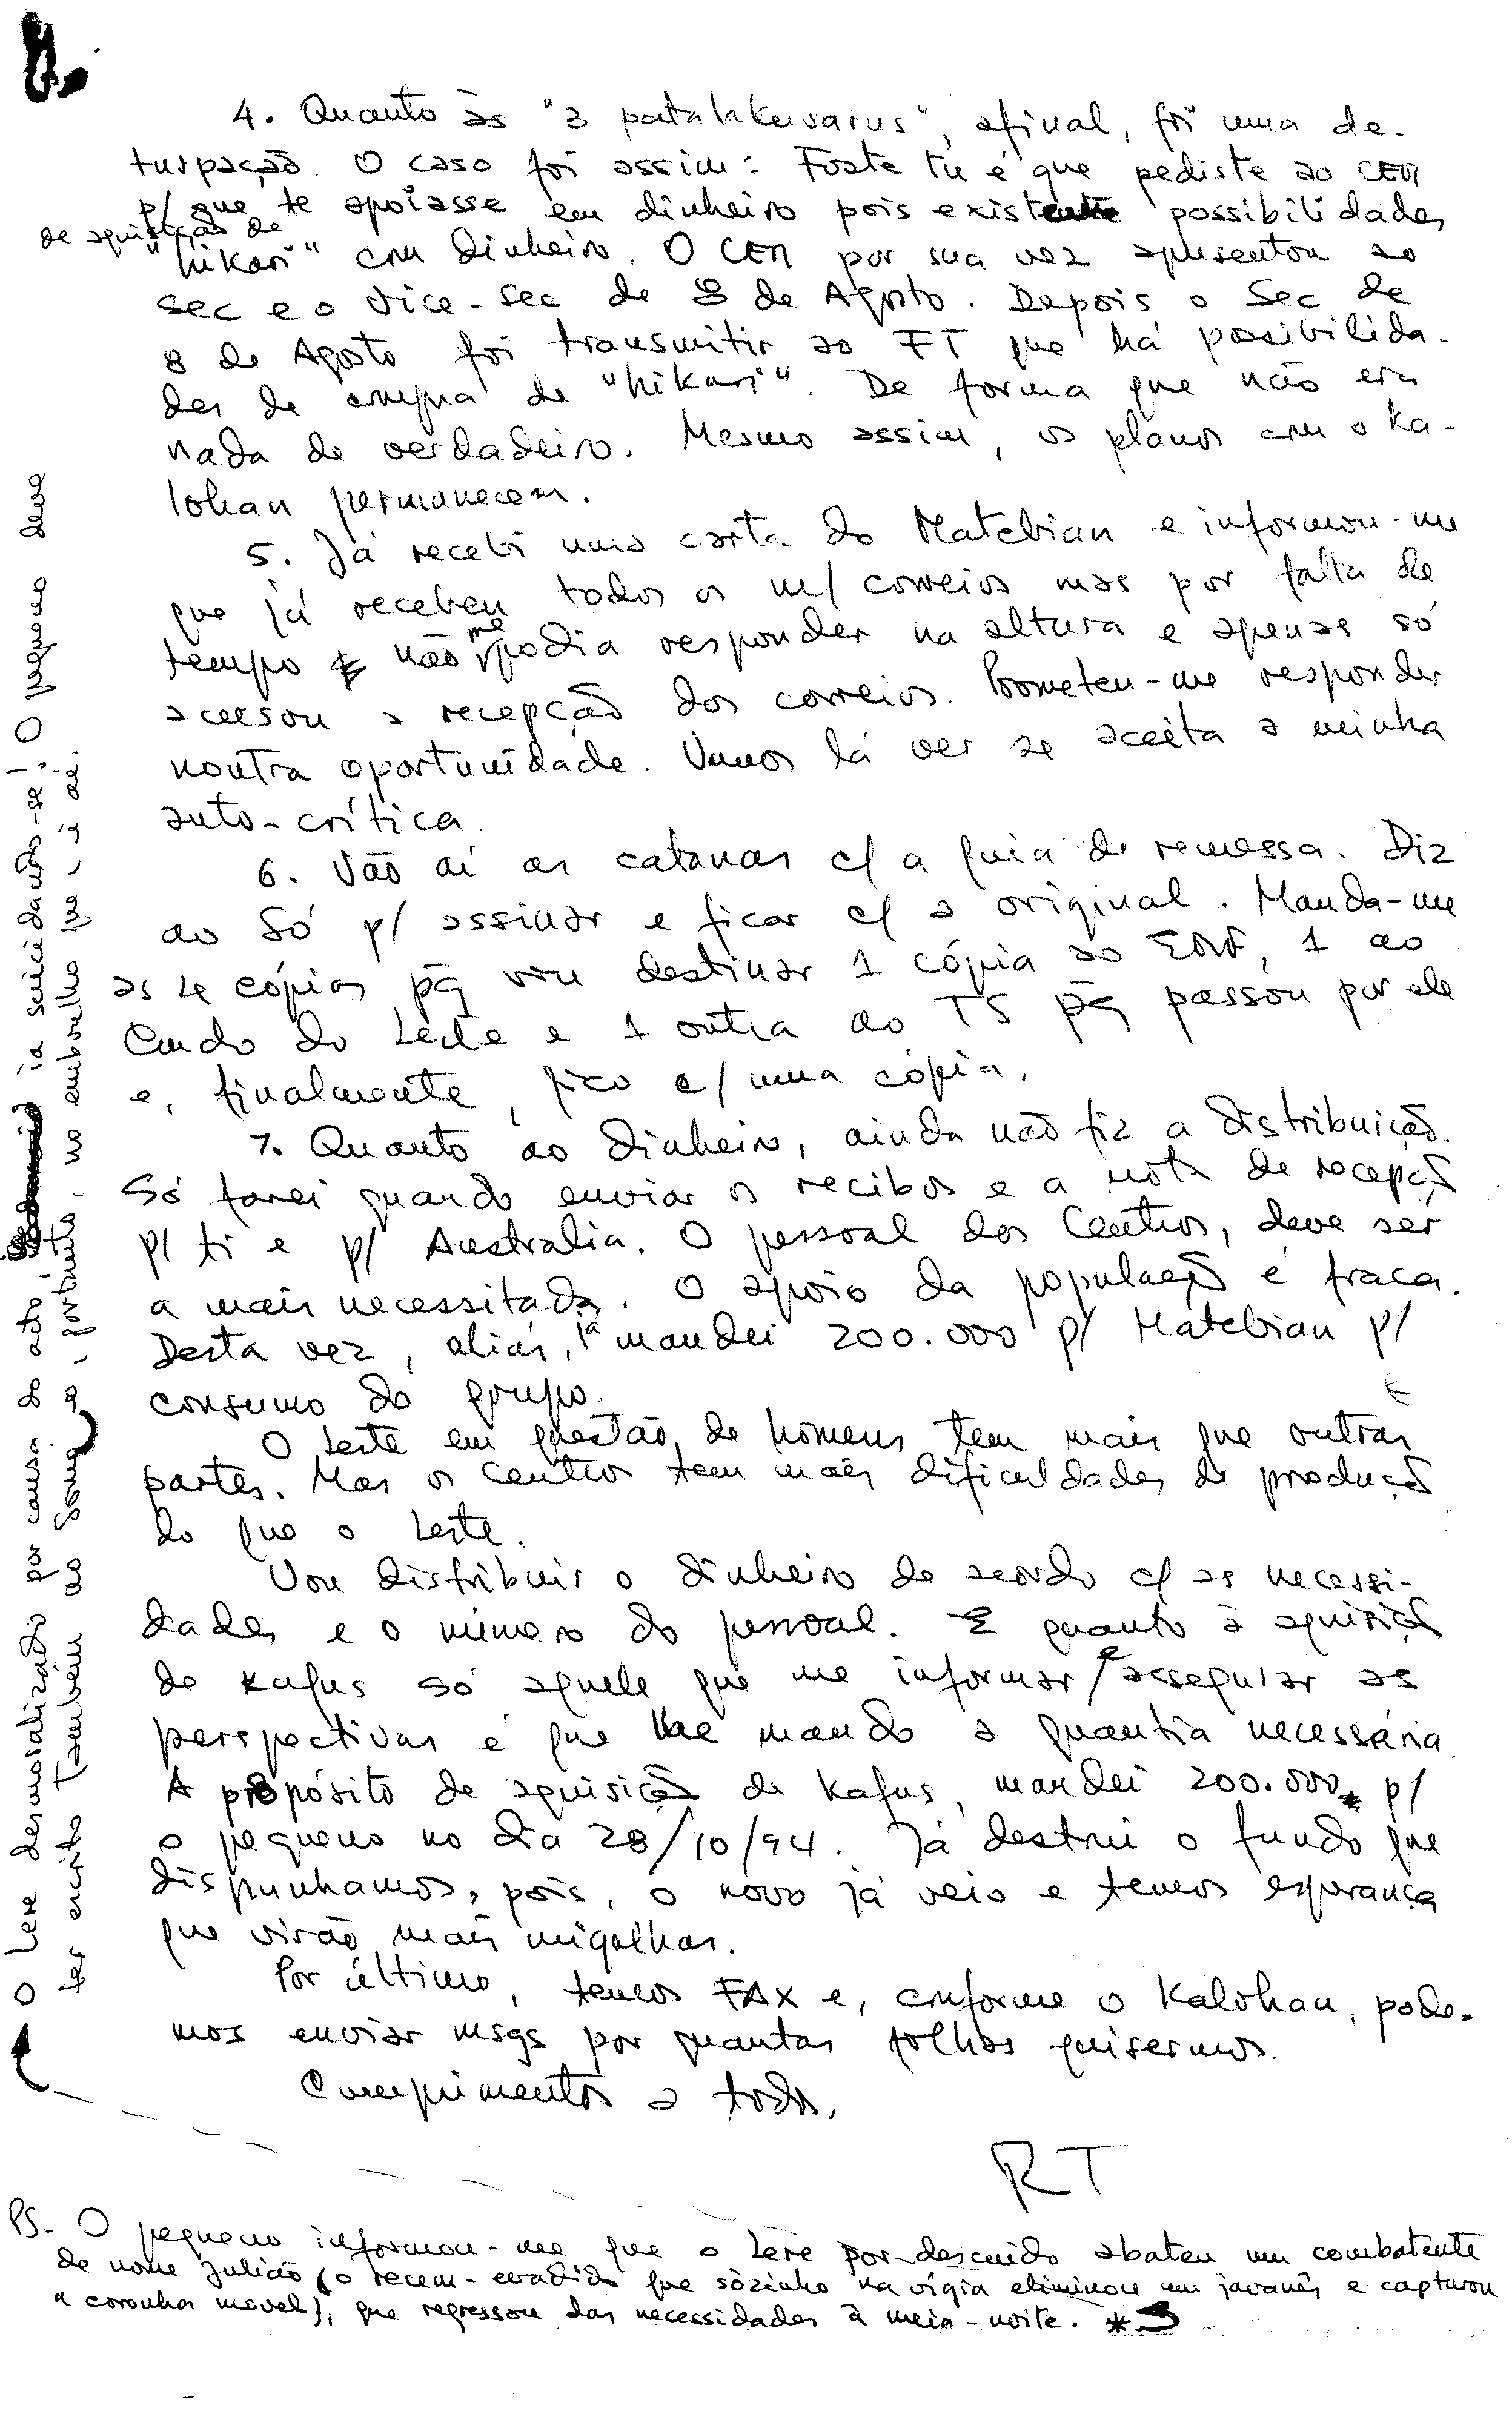 4. Quanto às "3 patalakuvarus", afinal, foi uma de-
turpação. O caso foi assim: Foste tu é que pediste ao CEM
p/ que te apoiasse em dinheiro pois existem possibilidades
de aquisição de
"hikari" com dinheiro. O CEM por sua vez apresentou ao
sec e o vice-sec de 8 de Agosto. Depois o Sec de
8 de Agosto foi transmitir ao FT que há possibilida-
des de compra de "hikari". De forma que não era
nada de verdadeiro. Mesmo assim, os planos com o Ka-
lohan permanecem.
5. Já recebi uma carta do Matebian e informou-me
que já recebeu todos os m/ correios mas por falta de
tempo não me podia responder na altura e apenas só
acusou a recepção dos correios. Prometeu-me responder
noutra oportunidade. Vamos lá ver se aceita a minha
auto-crítica.
6. Vão aí as catanas c/ a guia de remessa. Diz
ao Só p/ assinar e ficar c/ o original. Manda-me
as 4 cópias pq vou destinar 1 cópia ao 1 ao
Cmdo do Leste e 1 outra ao TS pq passou por ele
e, finalmente, fico c/ uma cópia.
7. Quanto ao dinheiro, ainda não fiz a distribuição.
Só farei quando enviar os recibos e a nota de recepção
p/ ti e p/ Australia. O pessoal dos Centros, deve ser
a mais necessitada. O apoio da população é fraca.
Desta vez, aliás, já mandei 200.000 p/ Matebian p/
consumo do grupo.
O Leste em questão de homens tem mais que outras
partes. Mas os centros tem mais dificuldades de produção
do que o Leste.
Vou distribuir o dinheiro de acordo c/ as necessi-
dades e o número do pessoal. E quanto à aquisição
de Kafus só aquele que me informar e assegurar as
perspectivas é que lhe mando a quantia necessária.
A propósito de aquisição de Kafus, mandei 200.000 p/
o pequeno no dia 28/10/94. Já destrui o fundo que
dispunhamos, pois, o novo já veio e temos esperança
que virão mais migalhas.
Por último, temos FAX e, conforme o Kalohan, pode-
mos enviar msgs por quantas folhas quisermos.
Cumprimentos a todos,
RT
PS- O pequeno informou-me que o Lere por descuido abateu um combatente
de nome Julião (o recem-evadido que sòzinho na vigia eliminou um javanês e capturou
a coronha movel), que regressou das necessidades à meia-noite. *
O Lere desmoralizado por causa do acto, ia suicidando-se! O pequeno deve
ter escrito também ao portanto, no embrulho que vai aí.